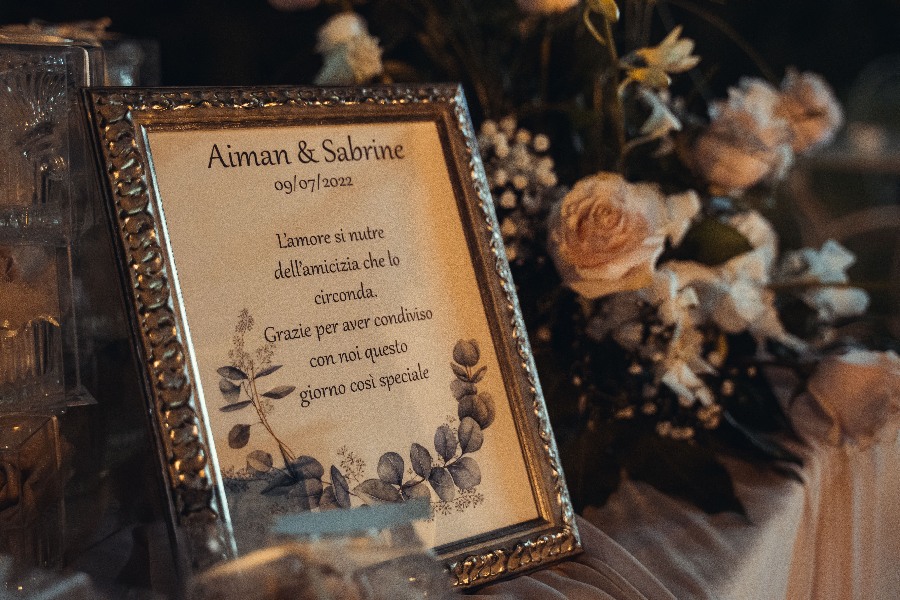 Aiman & Sabrine
09/07/2022
L'amore si nutre
dell'amicizia che lo
circonda.
Grazie per aver condiviso
con noi questo
giorno così speciale